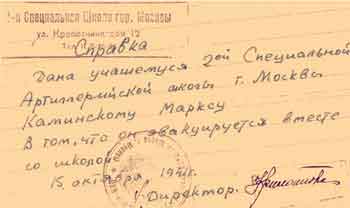 2-я Специальная Школа гор. Москвы
ул. Кропоткинская 12
Справка
Дана учащемуся 2ой Специальной
Артиллерийской школы г. Москвы
Каминскому Марксу
В том, что он эвакуируется вместе
со школой
15 октября 1941 г.
Директор.